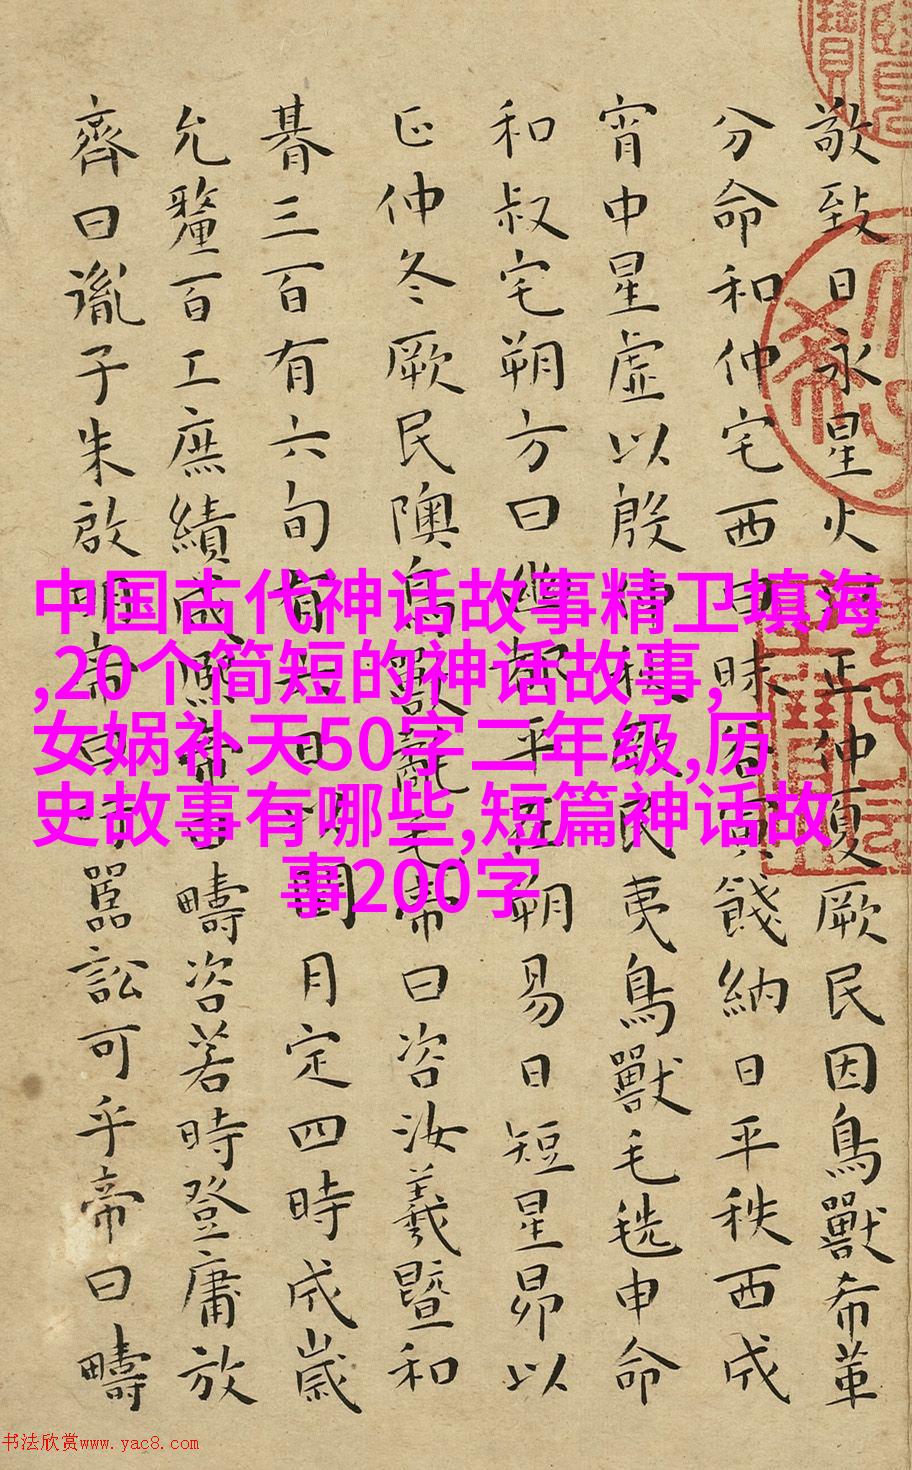 敬致日永星火正仲夏厥民因鳥獸希革
分命和仲宅西曰昧谷寅餞納日平秩西成
宵中星虛以殷仲秋厥民夷鳥獸毛毨申命
和叔宅朔方曰幽都平在朔易日短星昴以
正仲冬厥民隩鳥獸氄毛帝曰咨汝羲暨和
朞三百有六旬有六日以閏月定四時成歲
允釐百工庶績咸熙帝曰疇咨若時登庸放
齊曰胤子朱啟明帝曰吁嚚訟可乎帝曰疇
中国古代神话故事精卫填海
,20个简短的神话故事,
女娲补天50字二年级,历
史故事有哪些,短篇神话故
事200字
书法欣赏www.yac8.com